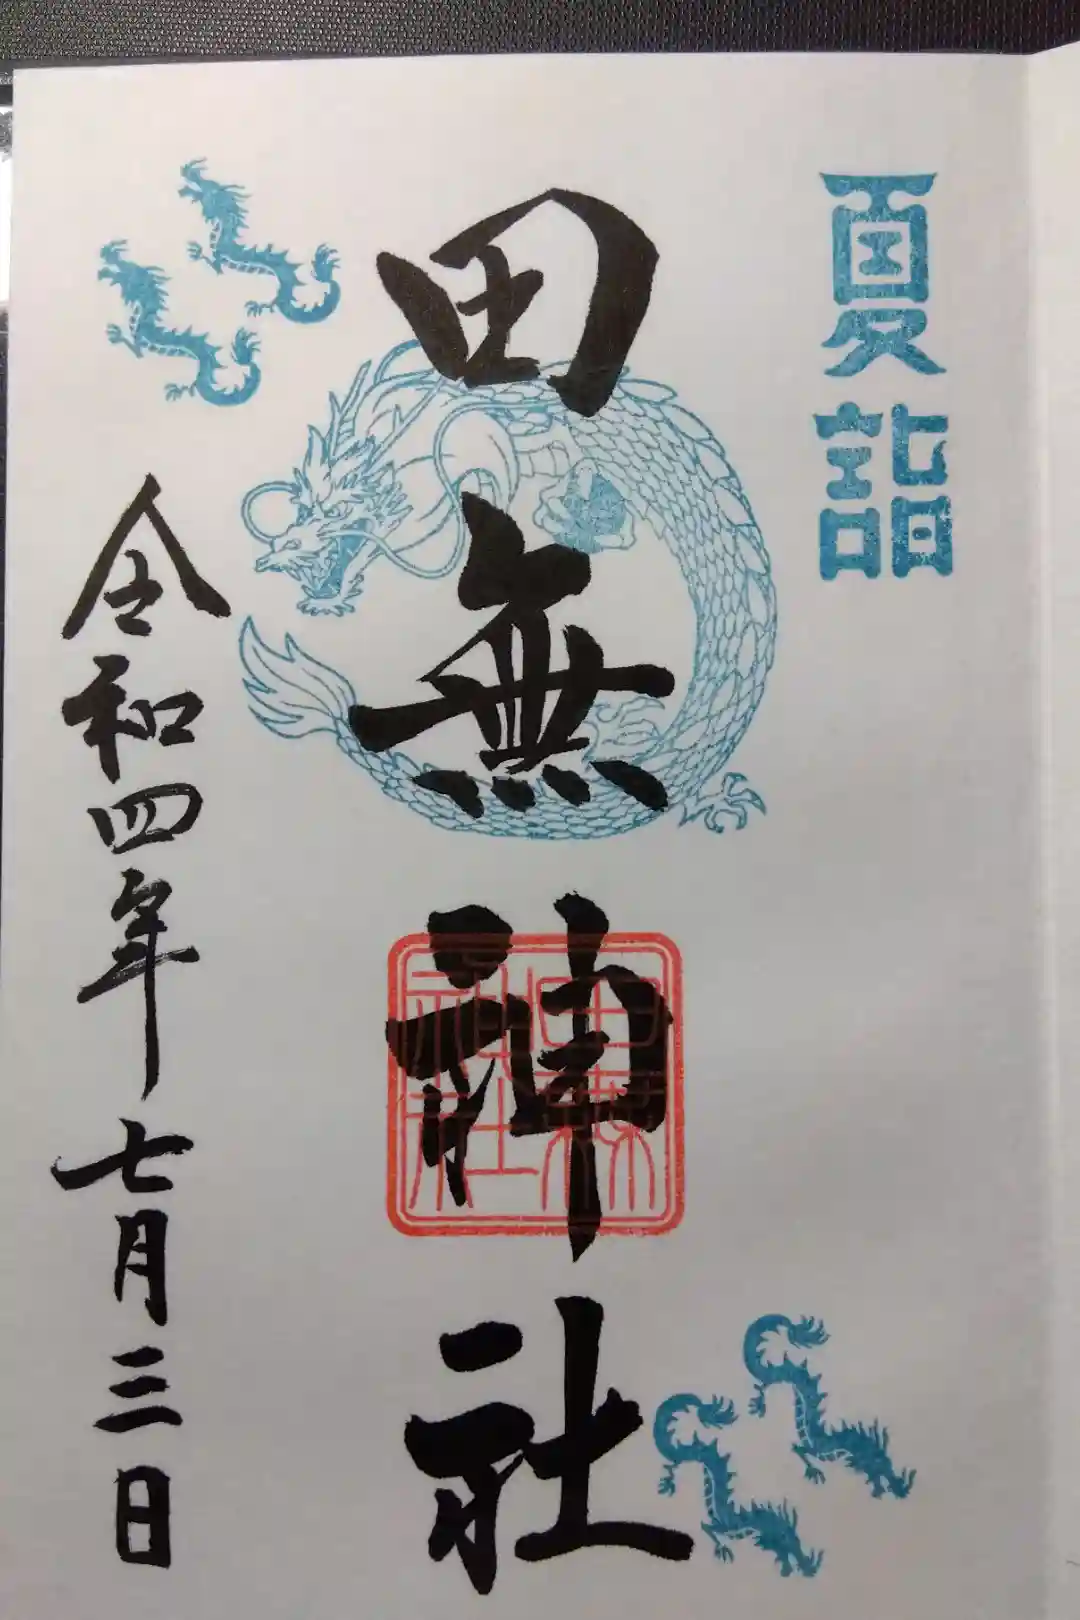 夏詣
田無神社
田無神社
令和四年七月三日